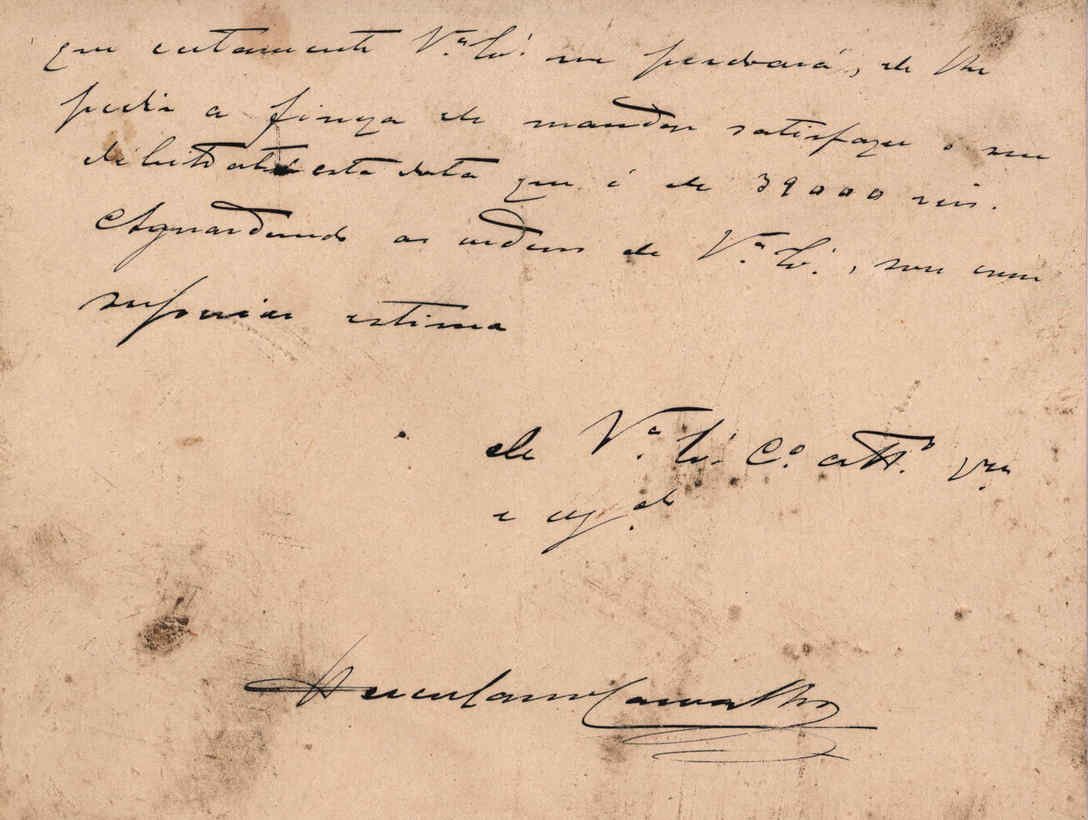 que certamente V.ª Ex.ª me perdoará, de lhe
pedir a fineza de mandar satisfazer o seu
debito até esta data que é de 39000 reis.
Aguardando as ordens de V.ª Ex.ª, sou com
superior estima
de V.ª Ex.ª C.º att.º
e
Herculano Carvalho